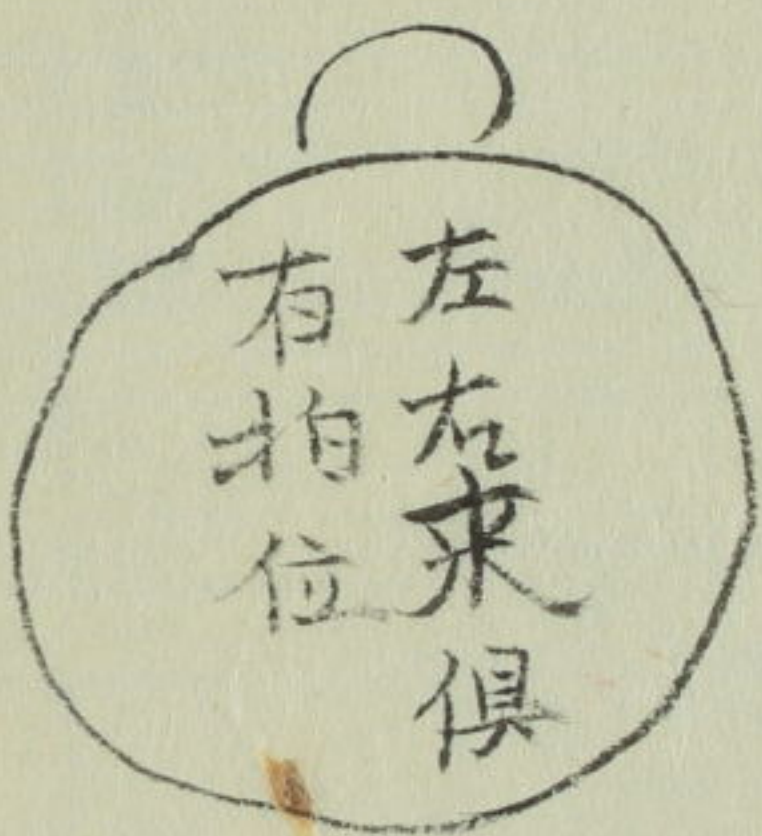 左右來俱
有拍位